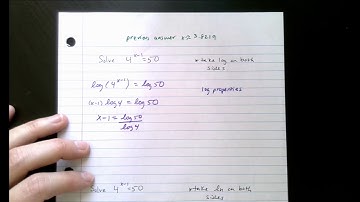 previous answer x≈ 3.8219
Solve 4^(x-1) = 50 *take log on both sides
log(4^(x-1)) = log 50 log properties
(x-1) log 4 = log 50
x-1 = log 50 / log 4
Solve 4^(x-1) = 50 *take ln on both sides